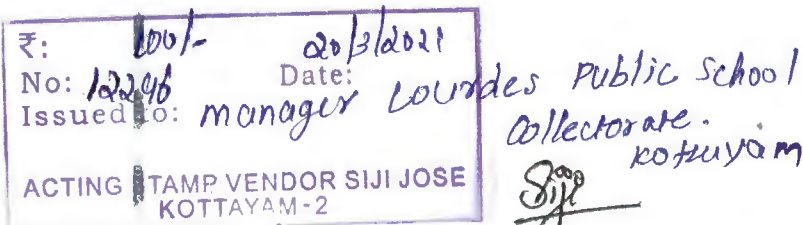 ₹: 100/- 20/3/2021
No: 12296 Date:
Issued to: manager Lourdes Public School
Collectorate.
Kottuyam
ACTING STAMP VENDOR SIJI JOSE
KOTTAYAM-2
Siji